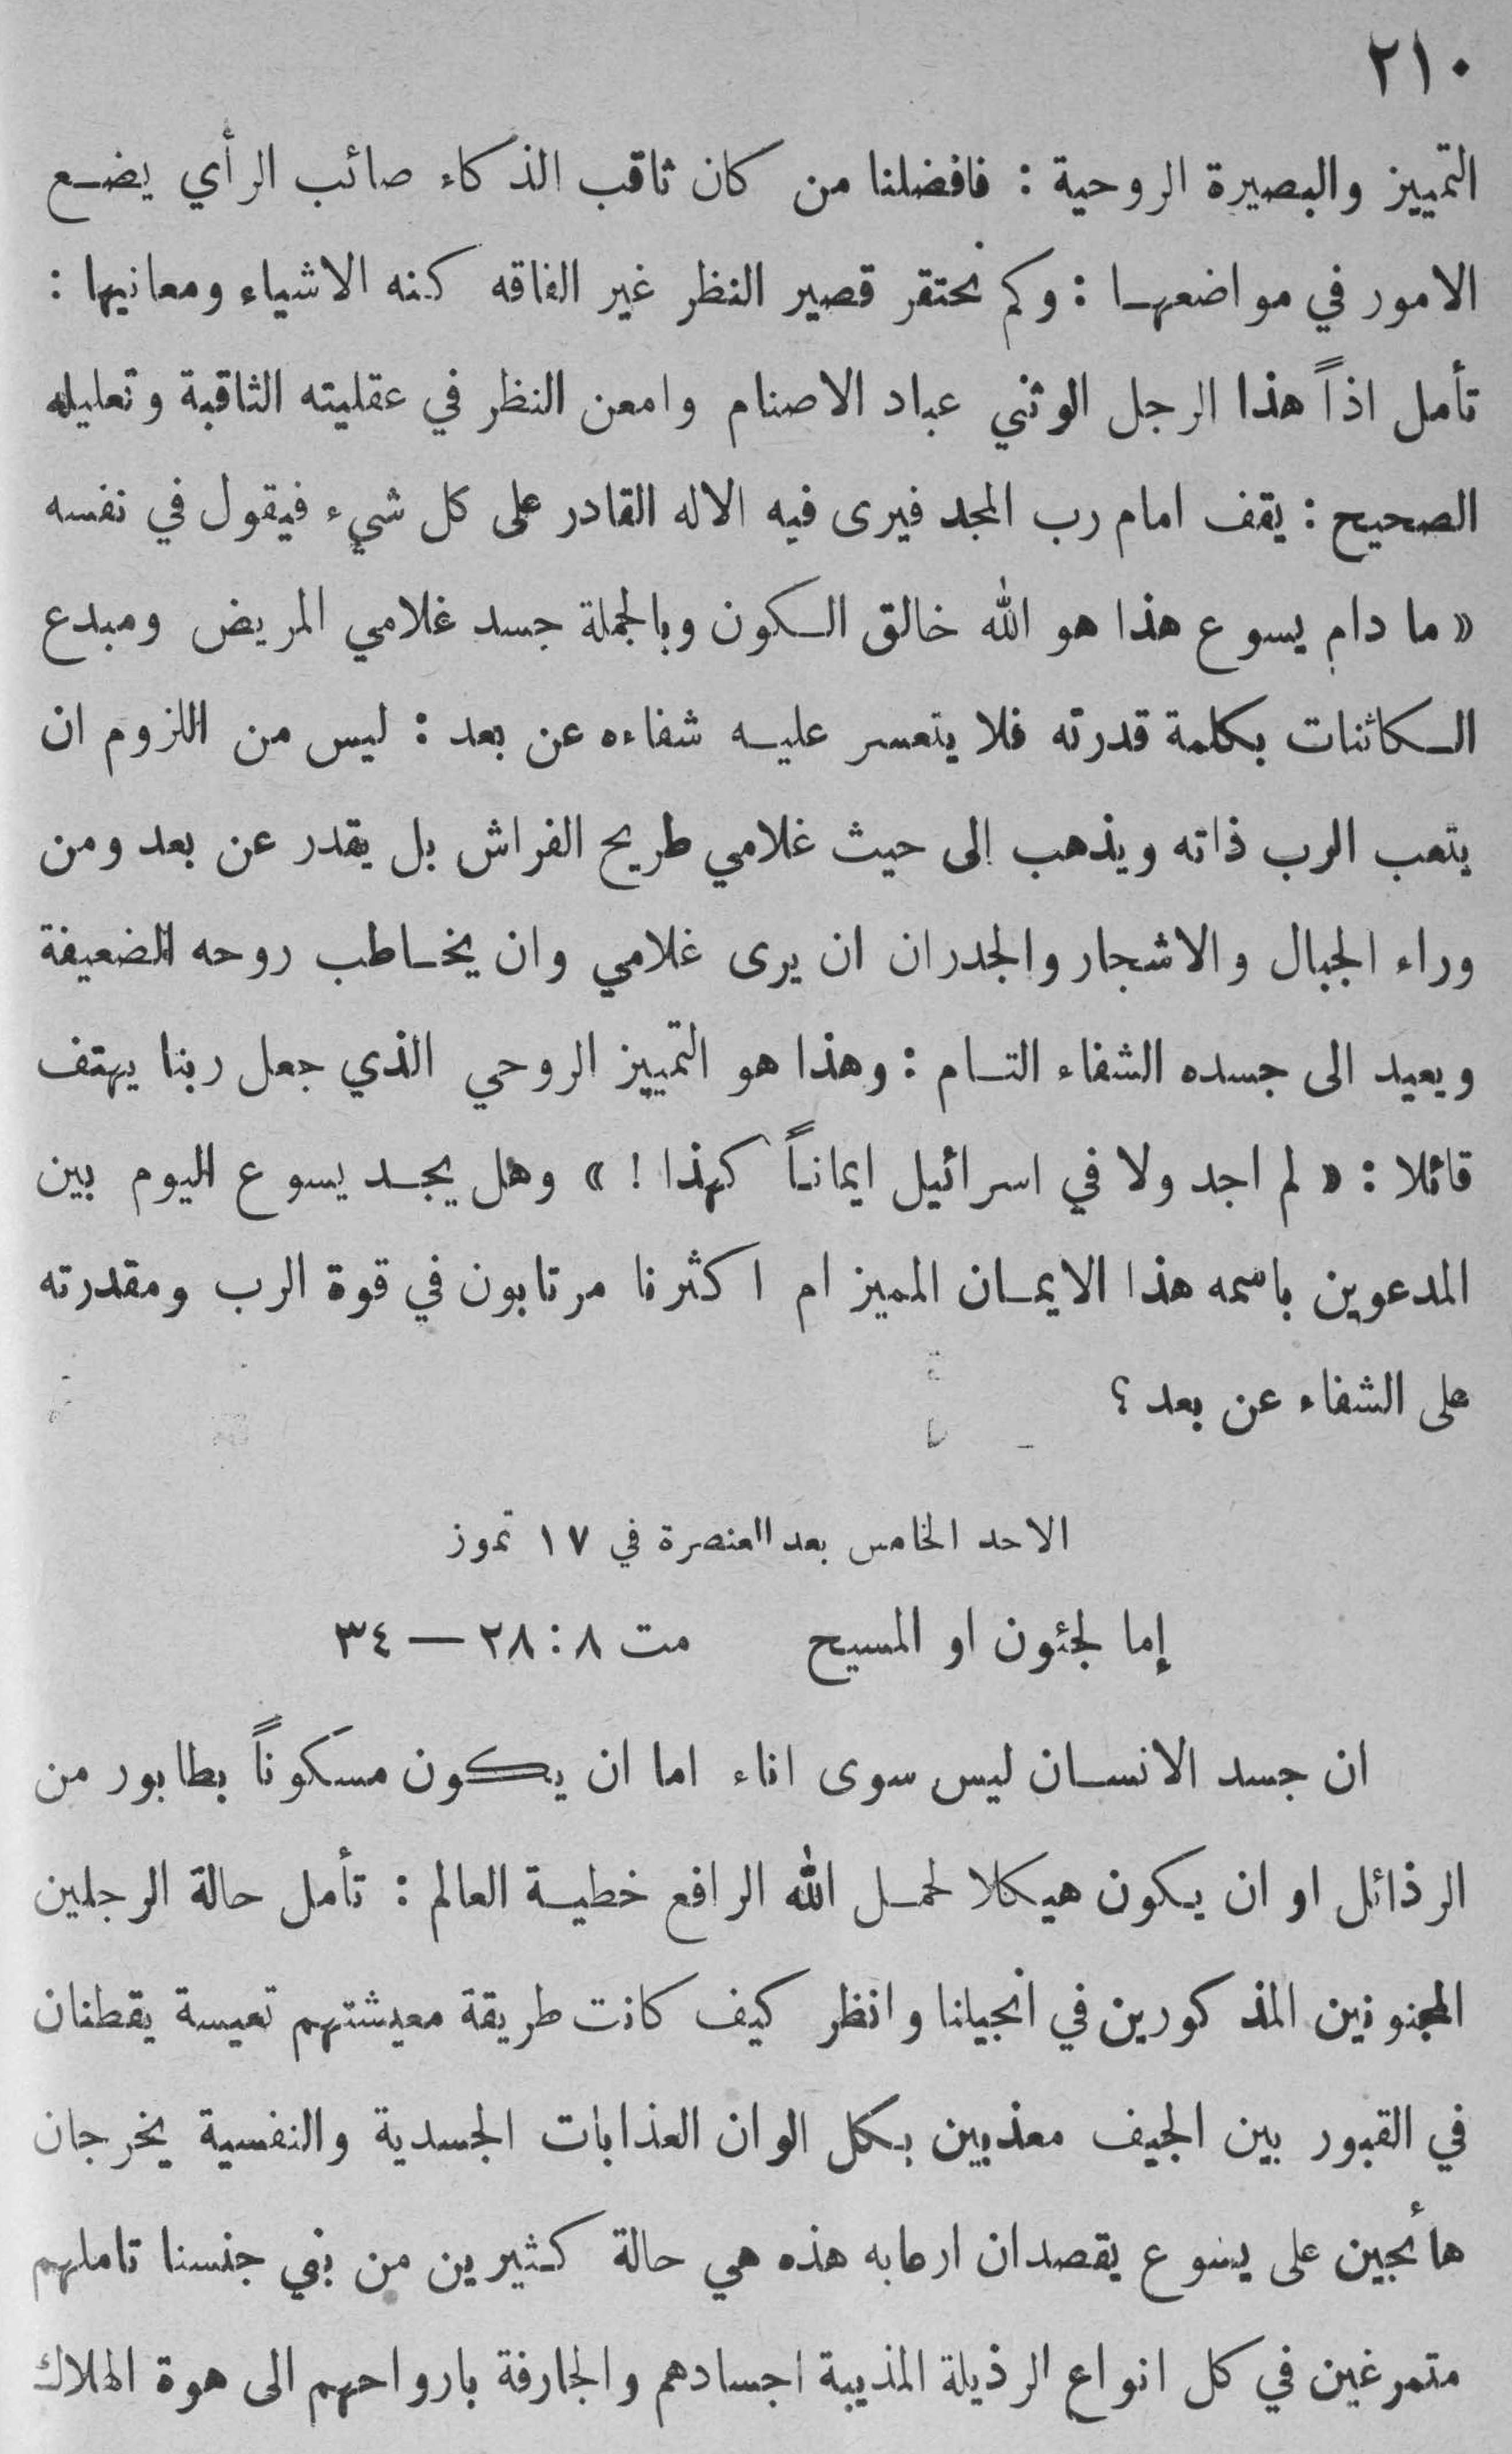 ٢١٠
التمييز والبصيرة الروحية : فافضلنا من كان ثاقب الذكاء صائب الرأي يضع
الامور في مواضعها : وكم نحتقر قصير النظر غير الفاقه كنه الاشياء ومعانيها :
تأمل اذاً هذا الرجل الوثني عباد الاصنام وامعن النظر في عقليته الثاقبة وتعليله
الصحيح : يقف امام رب المجد فيرى فيه الاله القادر على كل شيء فيقول في نفسه
« ما دام يسوع هذا هو الله خالق الكون وبالجملة جسد غلامي المريض ومبدع
الكائنات بكلمة قدرته فلا يتعسر عليه شفاءه عن بعد : ليس من اللزوم ان
يتعب الرب ذاته ويذهب إلى حيث غلامي طريح الفراش بل يقدر عن بعد ومن
وراء الجبال والاشجار والجدران ان يرى غلامي وان يخاطب روحه الضعيفة
ويعيد الى جسده الشفاء التام : وهذا هو التمييز الروحي الذي جعل ربنا يهتف
قائلا : « لم اجد ولا في اسرائيل ايماناً كهذا ! » وهل يجد يسوع اليوم بين
المدعوين باسمه هذا الايمان المميز ام اكثرنا مرتابون في قوة الرب ومقدرته
على الشفاء عن بعد ؟
الاحد الخامس بعد العنصرة في ١٧ تموز
إما لجئون او المسيح مت ٨ : ٢٨ — ٣٤
ان جسد الانسان ليس سوى اناء اما ان يكون مسكوناً بطابور من
الرذائل او ان يكون هيكلا لحمل الله الرافع خطية العالم : تأمل حالة الرجلين
المجنونين المذكورين في انجيلنا وانظر كيف كانت طريقة معيشتهم تعيسة يقطنان
في القبور بين الجيف معذبين بكل الوان العذابات الجسدية والنفسية يخرجان
هائجين على يسوع يقصدان ارعابه هذه هي حالة كثيرين من بني جنسنا تاملهم
متمرغين في كل انواع الرذيلة المذيبة اجسادهم والجارفة بارواحهم الى هوة الهلاك